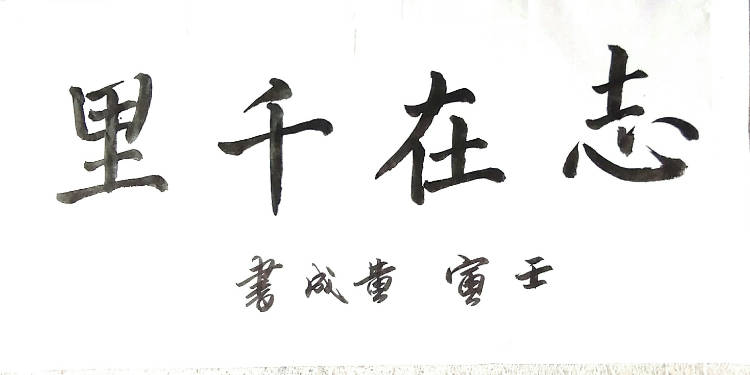 志在千里
壬寅 黄成書